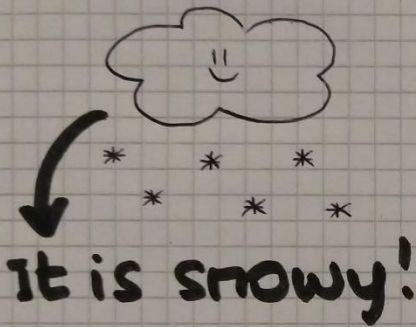 It is snowy!